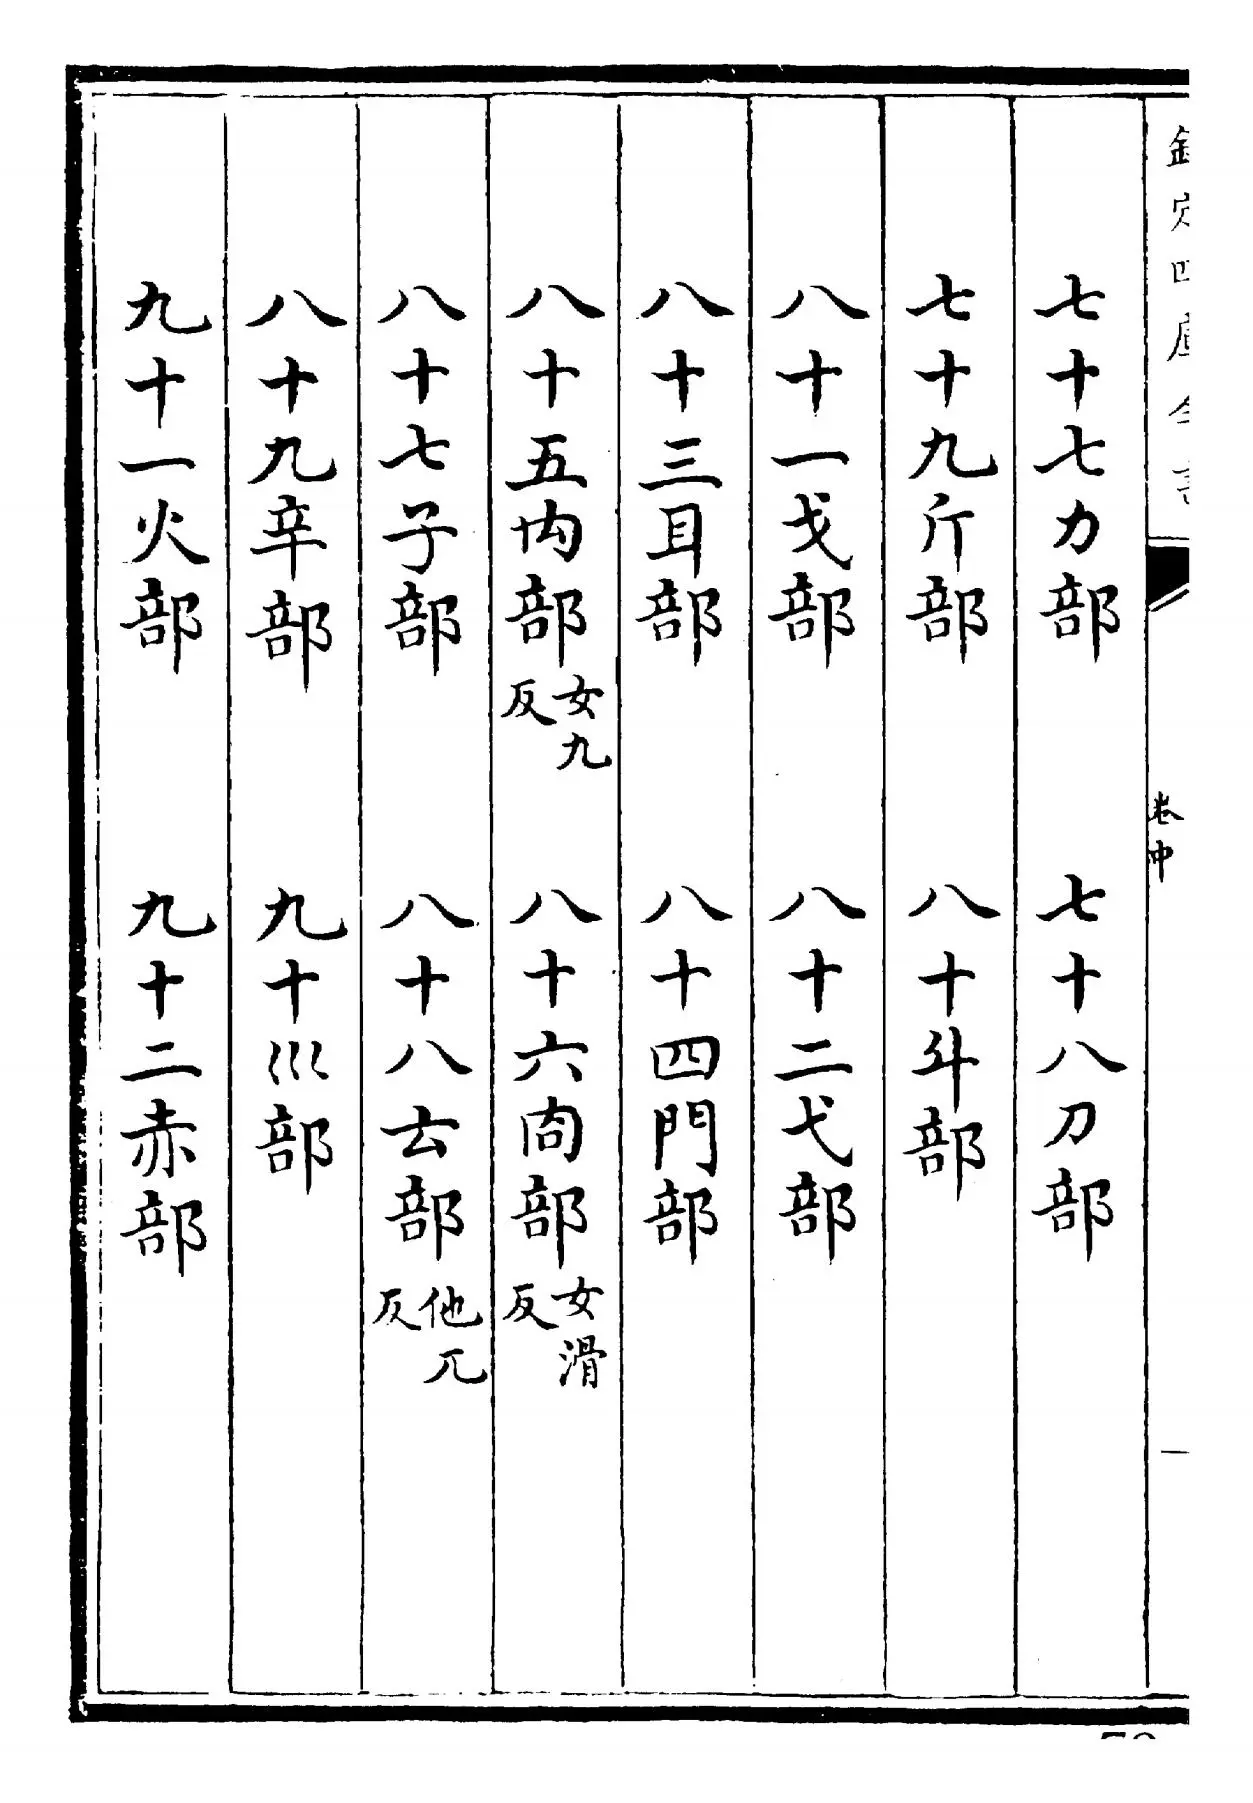 欽定四庫全書
卷中
一
七十七力部　七十八刀部
七十九斤部　八十斗部
八十一戈部　八十二弋部
八十三耳部　八十四門部
八十五禸部女九反　八十六㕯部女滑反
八十七子部　八十八𠫓部他兀反
八十九辛部　九十巛部
九十一火部　九十二赤部